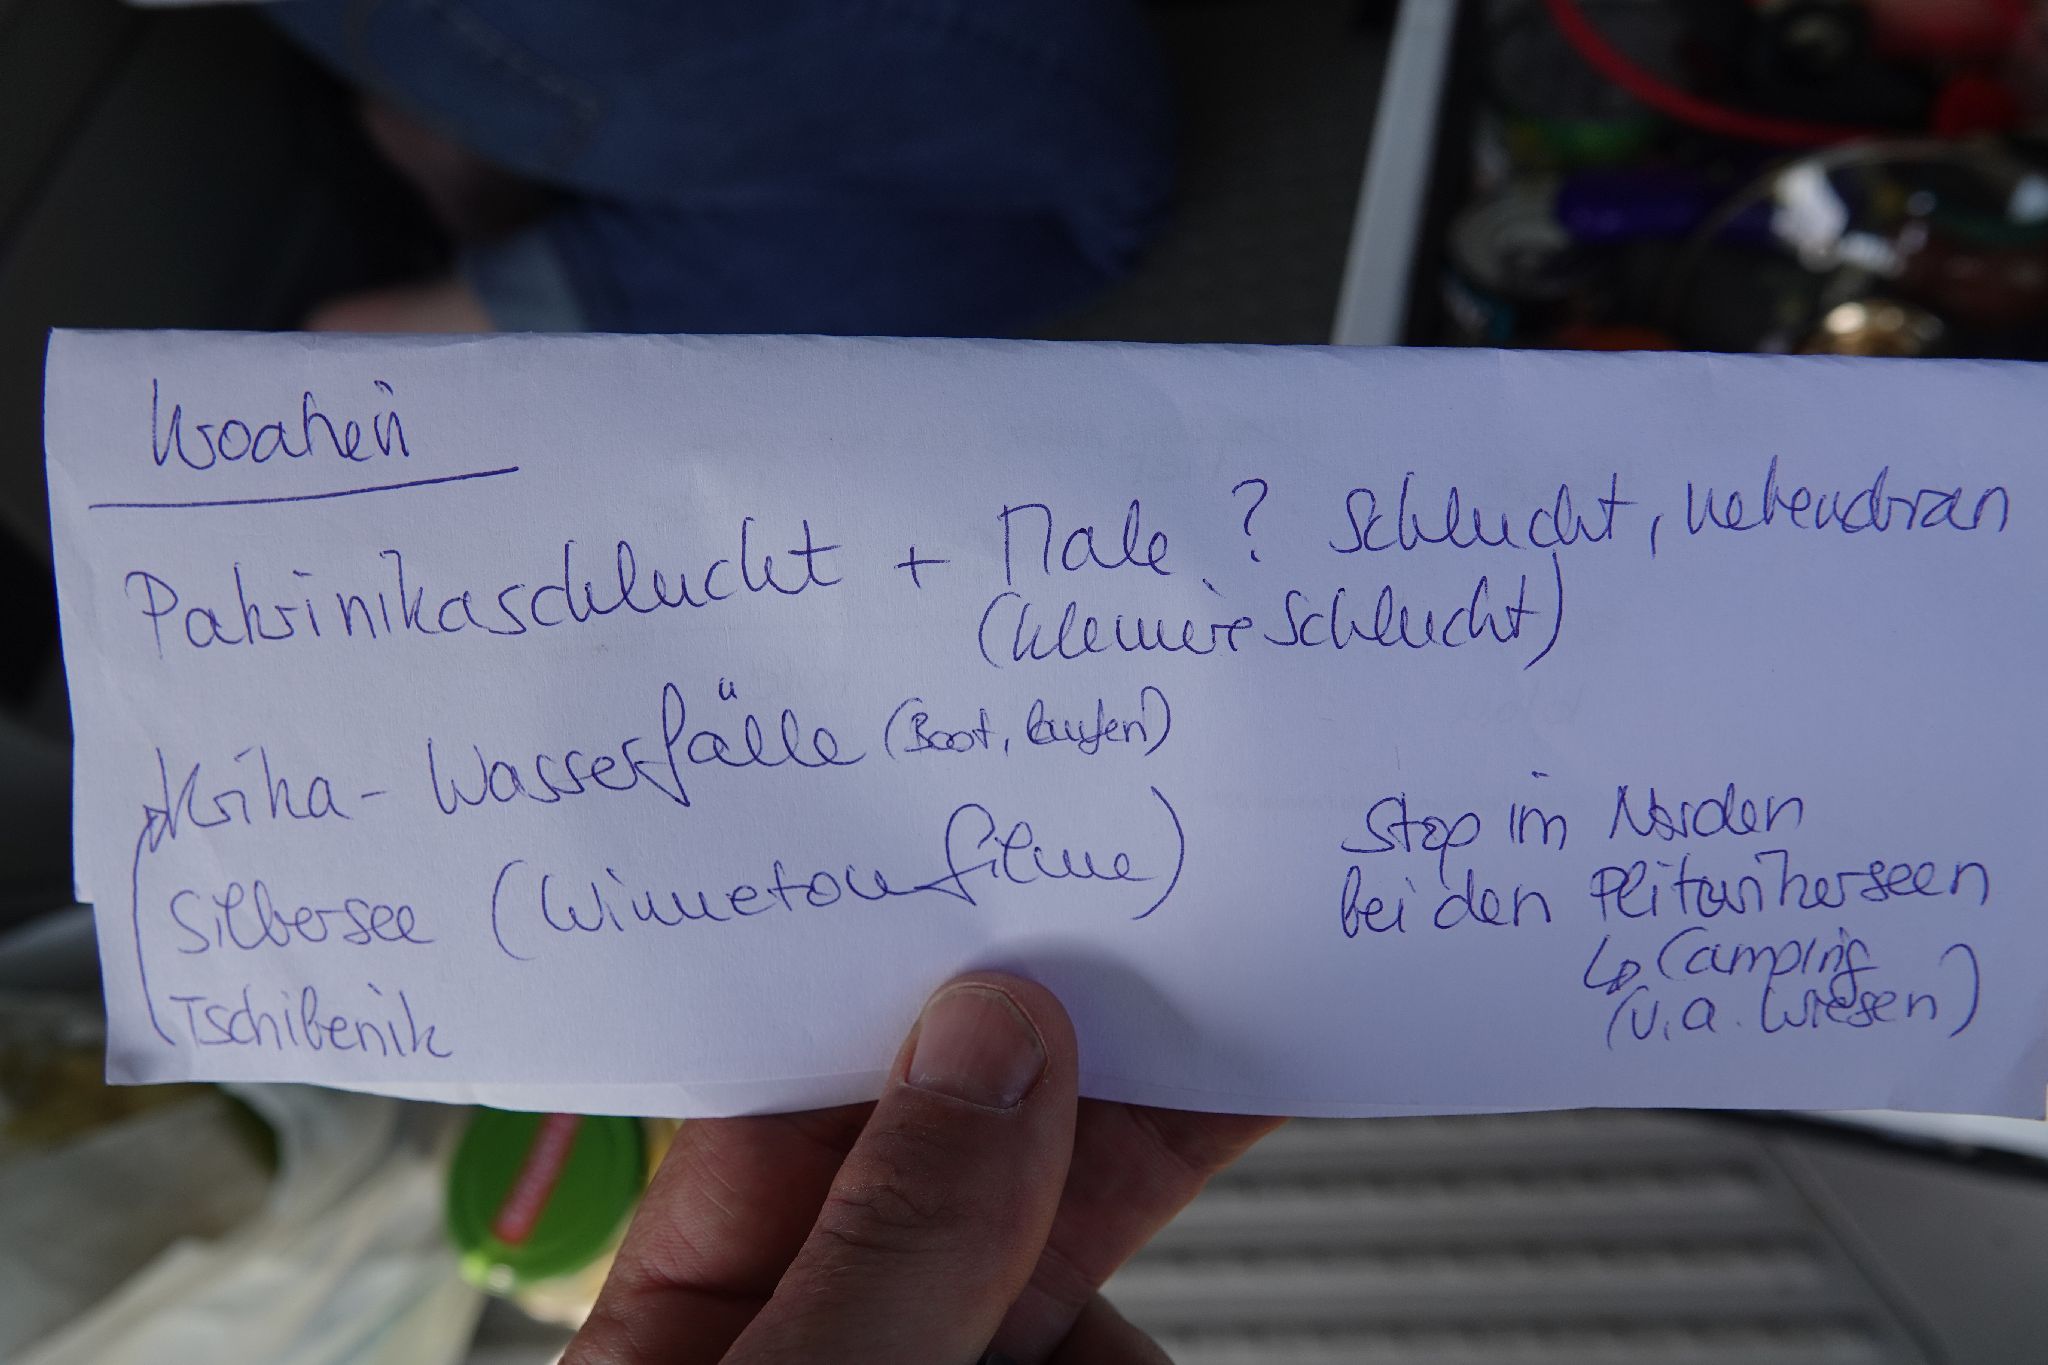 Kroatien
Pakrinikaschlucht + Male ? Schlucht, nebendran
(kleinere Schlucht)
Krika - Wasserfälle (Boot, laufen)
Silbersee (Winnetou filme)
Tschibenik
Stop im Norden
bei den Plitwikerseen
↳ Camping
(u.a. Wiesen)